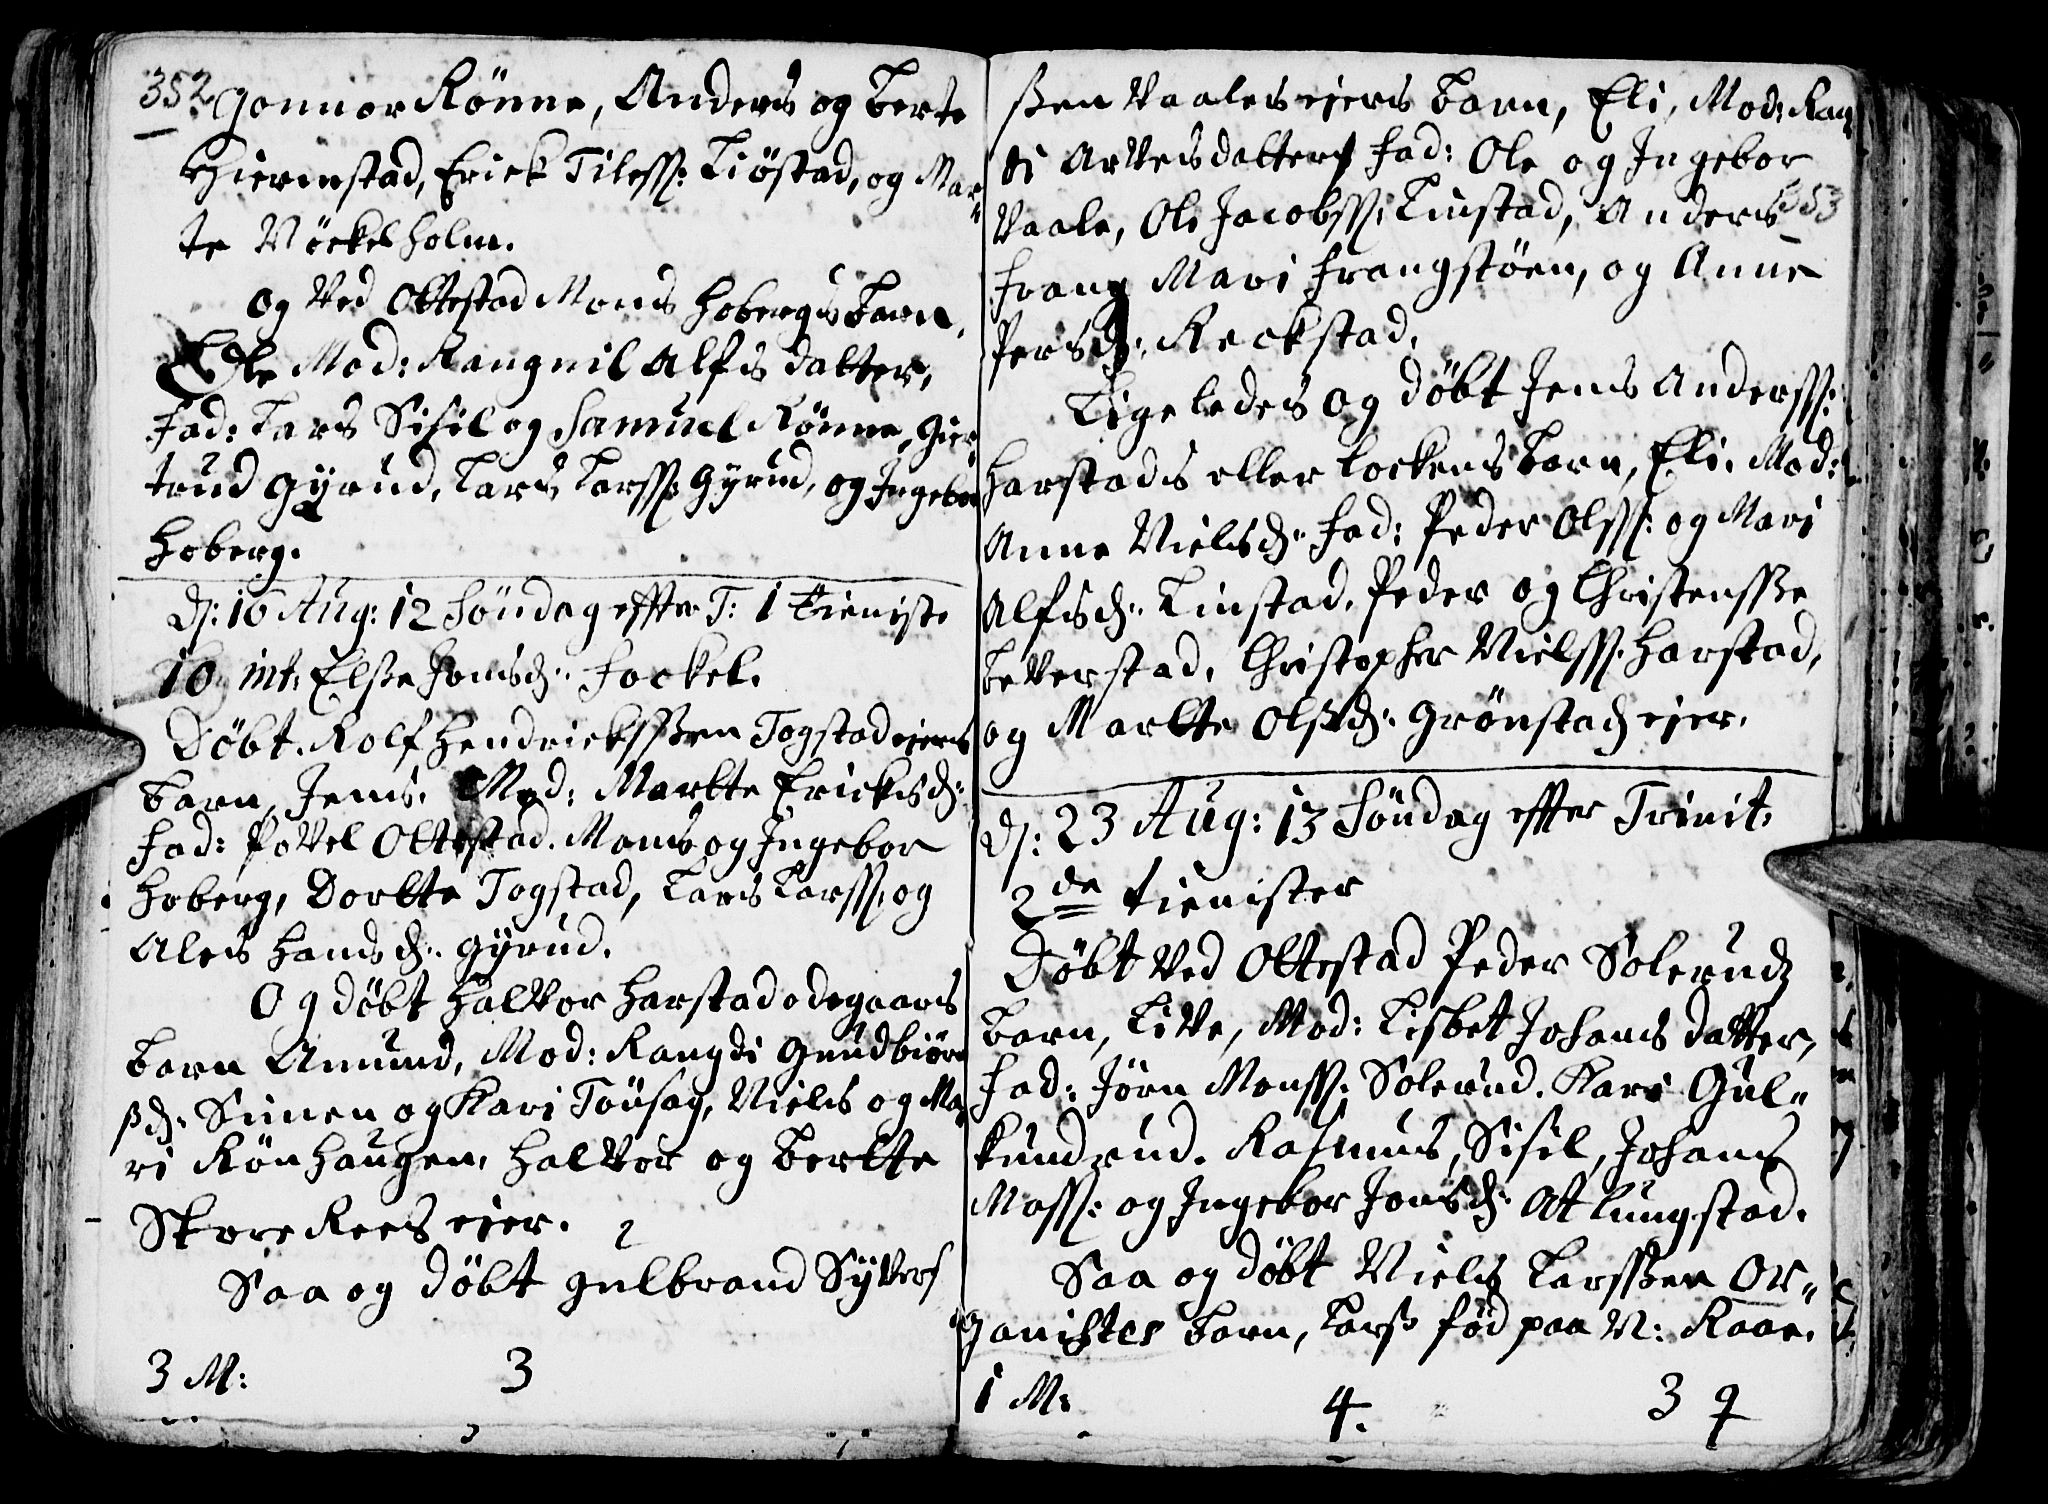 352
Gonnor Rönne, Anders og Berte
Hiermstad, Erick Tilesss: Liöstad, og Mar=
te Nöckelholm.
Og Ved Ottestad Mons Hobergs Barn,
Ole Mod: Rangnil Alfsdatter,
Fad: Lars Sisil og Samuel Rönne, Gier
trud Gÿrud, Lars Larsss: Gÿrud, og Ingebor
Hoberg.
D: 16 Aug: 12 Söndag effter T: 1 Tieniste
10 int. Elße Jonsd: Fockel.
Döbt. Rolf Hendricksßen Togstadeiers
Barn, Jens. Mod: Martte Ericksd:
Fad: Povel Ottestad. Mons og Ingebor
Hoberg, Dortte Togstad, Lars Larsss: og
Ales Hansd: Gÿrud.
Og döbt Halvor Harstadodegaars
Barn Amund, Mod: Rangdi Gundbiörn
ßd: Simen og Kari Töusag, Niels og Ma
ri Rönhaugen, Halvor og Bertte
Skore Rees eier.
Saa og döbt Gulbrand Sÿvers
3 M: 3
ßen Vaaleseiers Barn, Eli, Mod: Rang
di Arvesdatter Fad: Ole og Ingebor
353
Vaale, Ole Jacobsss: Linstad, Anders
Frang Mari Frangstöen, og Anne
Persd: Reckstad.
Ligeledes og döbt Jens Andersss:
Harstads eller Lockens Barn, Eli. Mod:
Anne Nielsd: Fad: Peder Olsss: og Mari
Alfsd: Linstad, Peder og Christensße
Beverstad, Christopher Nielsss: Harstad,
og Martte Olßd: Grönstad eier.
D: 23 Aug: 13 Söndag effter Trinit:
2de tienister
Döbt Ved Ottestad Peder Solerudz
Barn, Live, Mod: Lisbet Johansdatter,
Fad: Jörn Monsss: Solerud. Kari Gul=
kundrud. Rasmus, Sisil, Johans
Masss: og Ingebor Jonsd: At Lungstad.
Saa og döbt Niels Larsßen Or=
ganistes Barn, Larß föd paa N: Raae.
1 M: 4. 3 9